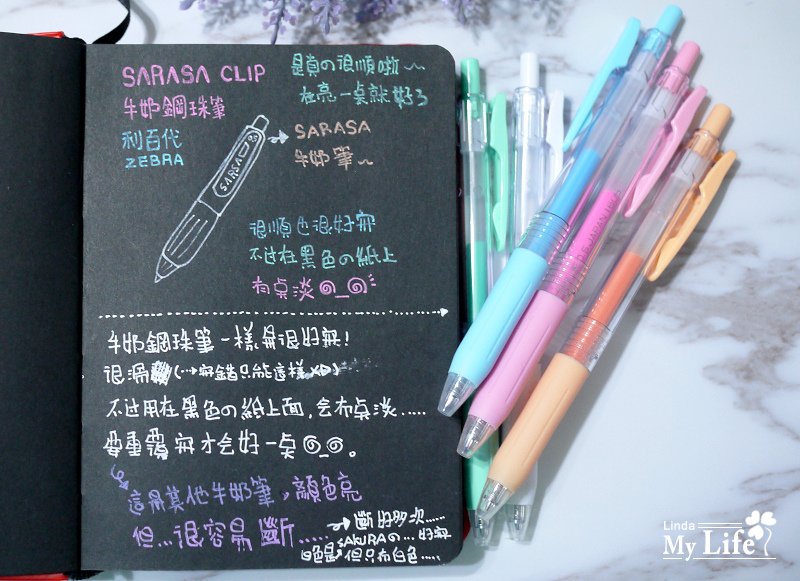 SARASA CLIP
牛奶鋼珠筆
利百代
ZEBRA
是真の很順啦～
在亮一點就好了
SARASA
牛奶筆～
SARSA
很順也很好寫
不过在黑色の紙上
有點淡@_@
牛奶鋼珠筆一樣算很好寫!
很滑 (→寫錯只能這樣XD)
不过用在黑色の紙上面,会有點淡.....
要重覆寫才会好一點@_@。
這是其他牛奶筆,顏色亮
但...很容易斷.....
→斷好多次.....
SAKURAの...好寫
但只有白色....
JAPAN
Linda
My Life